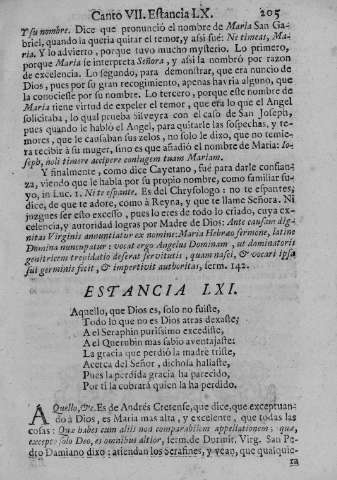 Canto VII. Estancia LX. 205
Y su nombre. Dice que pronunciò el nombre de Maria San Ga-
briel, quando la queria quitar el temor, y assi fuè: Ne timeas, Ma-
ria. Y lo advierto, porque tuvo mucho mysterio. Lo primero,
porque Maria se interpreta Señora, y assi la nombrò por razon
de excelencia. Lo segundo, para demonstrar, que era nuncio de
Dios, pues por su gran recogimiento, apenas havria alguno, que
la conociesse por su nombre. Lo tercero, porque este nombre de
Maria tiene virtud de expeler el temor, que era lo que el Angel
solicitaba, lo qual prueba Silveyra con el caso de San Joseph,
pues quando le hablò el Angel, para quitarle las sospechas, y te-
mores, que le causaban sus zelos, no solo le dixo, que no temie-
ra recibir à su muger, sino es que añadiò el nombre de Maria: Io-
seph, noli timere accipere coniugem tuam Mariam.
Y finalmente, como dice Cayetano, fuè para darle confian-
za, viendo que le habla por su propio nombre, como familiar su-
yo, in Luc. 1. Ne te espante. Es del Chrysologo: no te espantes;
dice, de que te adore, como à Reyna, y que te llame Señora. Ni
juzgues ser esto excesso, pues lo eres de todo lo criado, cuya ex-
celencia, y autoridad logras por Madre de Dios: Ante causam dig-
nitas Virginis annuntiatur ex nomine: Maria Hebræo sermone, latine
Domina nuncupatur: vocat ergo Angelus Dominam, ut dominatoris
genitricem trepidatio deserat servitutis, quam nasci, & vocari ipsa
sui germinis fecit, & impertivit authoritas, serm. 142.
ESTANCIA LXI.
Aquello, que Dios es, solo no fuiste,
Todo lo que no es Dios atras dexaste;
A el Seraphin purissimo excediste,
A el Querubin mas sabio aventajaste:
La gracia que perdiò la madre triste,
Acerca del Señor, dichosa hallaste,
Pues la perdida gracia ha parecido,
Por ti la cobrarà quien la ha perdido.
AQuello, &c. Es de Andrés Cretense, que dice, que exceptuan-
do à Dios, es Maria mas alta, y excelente, que todas las
cosas: Quæ habes cum aliis non comparabilem appellationem; quæ,
excepto solo Deo, es omnibus altior, serm. de Dormit. Virg. San Pe-
dro Damiano dixo: atiendan los Serafines, y vean, que qualquie-
ra